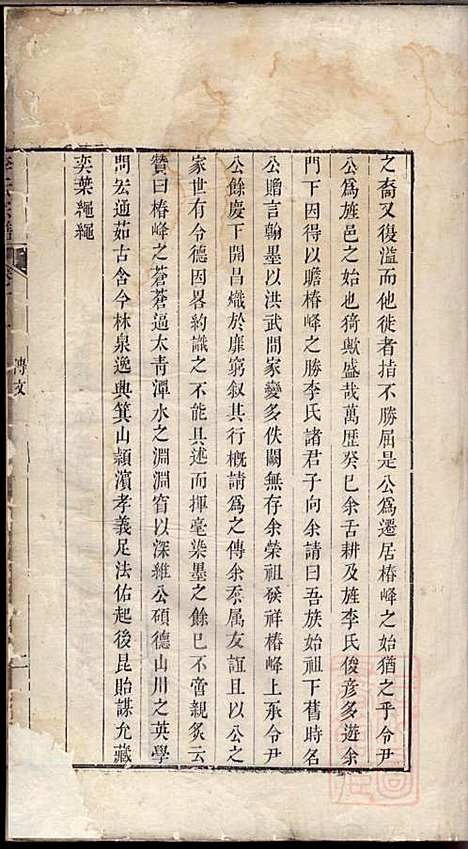 之裔又復溢而他徙者指不勝屈是公為遷居椿峰之始猶之乎令尹
公為旌邑之始也猗歟盛哉萬歷癸巳余舌耕及旌李氏俊彥多遊余
門下因得以瞻椿峰之勝李氏諸君子向余請曰吾族始祖下舊時名
公贈言翰墨以洪武間家變多佚闕無存余榮祖發祥椿峰上承令尹
公餘慶下開昌熾於靡窮叙其行概請為之傳余忝属友誼且以公之
家世有令德因畧約識之不能具述而揮毫染墨之餘已不啻親炙云
贊曰椿峰之蒼蒼逼太青潭水之淵淵窅以深維公碩德山川之英學
問宏通茹古含今林泉逸興箕山潁濱孝義足法佑起後昆貽謀允臧
奕葉繩繩
傳文